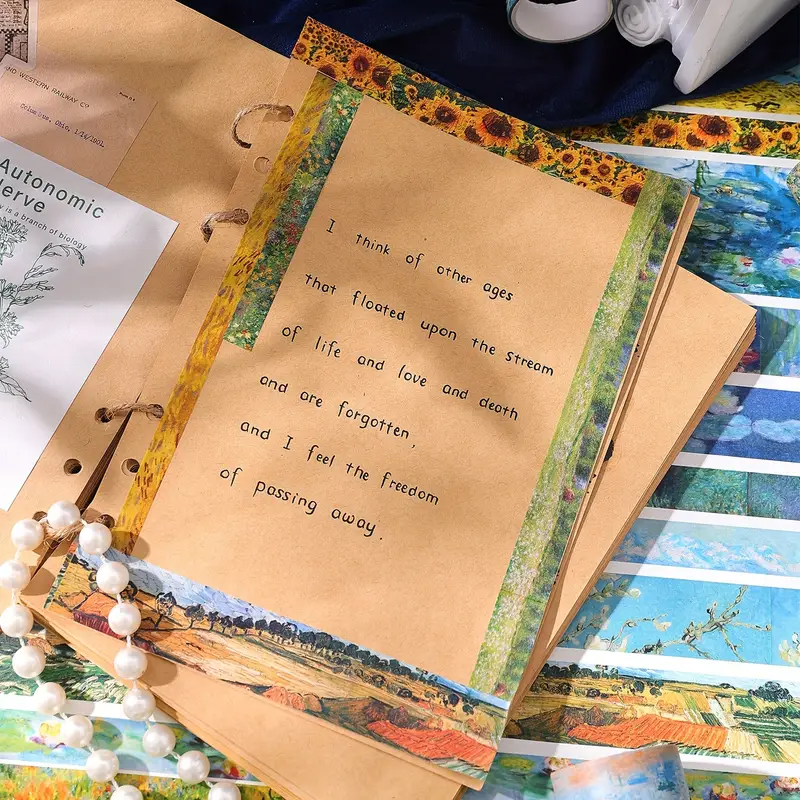 WESTERN RAILWAY CO
Columbus, Ohio, 1/14/1901
Autonomic
Nerve
is a branch of biology
I think of other ages
that floated upon the stream
of life and love and death
and are forgotten,
and I feel the freedom
of passing away.